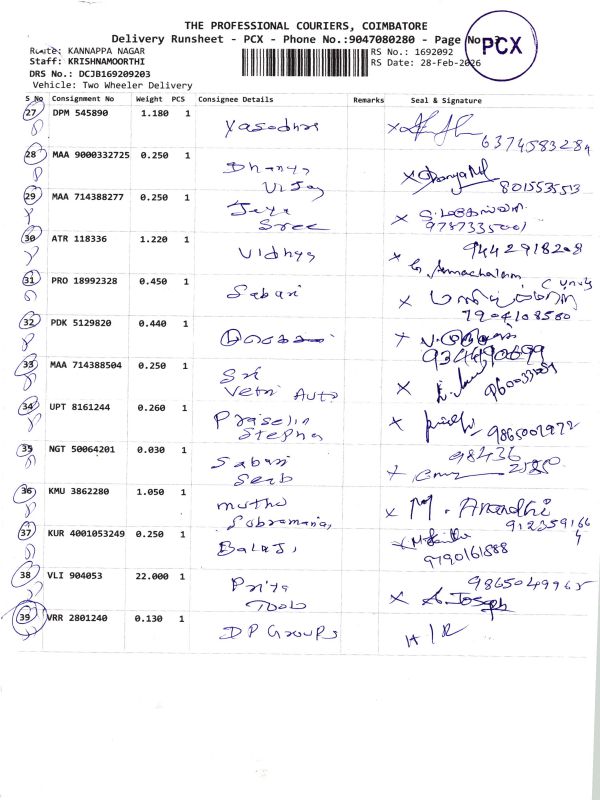 THE PROFESSIONAL COURIERS, COIMBATORE
Delivery Runsheet - PCX - Phone No.:9047080280 - Page No.: 3
PCX
Route: KANNAPPA NAGAR
RS No.: 1692092
Staff: KRISHNAMOORTHI
RS Date: 28-Feb-2026
DRS No.: DCJB169209203
Vehicle: Two Wheeler Delivery
S No Consignment No Weight PCS Consignee Details Remarks Seal & Signature
27 DPM 545890 1.180 1 Yasodha
6374583284
28 MAA 9000332725 0.250 1 Dhanya
Vijay
8015535513
29 MAA 714388277 0.250 1 Jaya
Sree
9787335001
30 ATR 118336 1.220 1 Vidhya 9442918208
G. Arunachalam
31 PRO 18992328 0.450 1 Sabari
7904108500
32 PDK 5129820 0.440 1
9344490699
33 MAA 714388504 0.250 1 Sri
Vetri Auto
34 UPT 8161244 0.260 1 Praiselin
Stepha
9865002972
35 NGT 50064201 0.030 1 Sabari
Serb
98436
25850
36 KMU 3862280 1.050 1 muthu
Subramania, M. Anandhi
912359166
4
37 KUR 4001053249 0.250 1 Balaji
9790161888
38 VLI 904053 22.000 1 Priya
Tool
9865049965
A. Joseph
39 VRR 2801240 0.130 1 DP Groups H/R